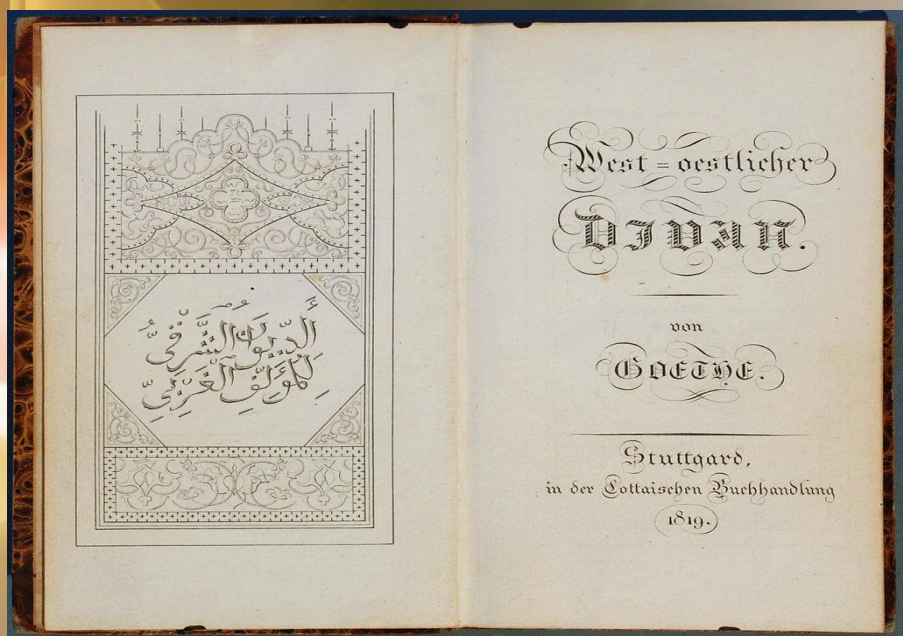 أَلدِّيوَانُ الشَّرْقِيُّ
لِلمُؤَلِّفِ الغَرْبِيِّ
West=oestlicher
DIVAN.
von
GOETHE.
Stuttgard,
in der Cottaischen Buchhandlung
1819.